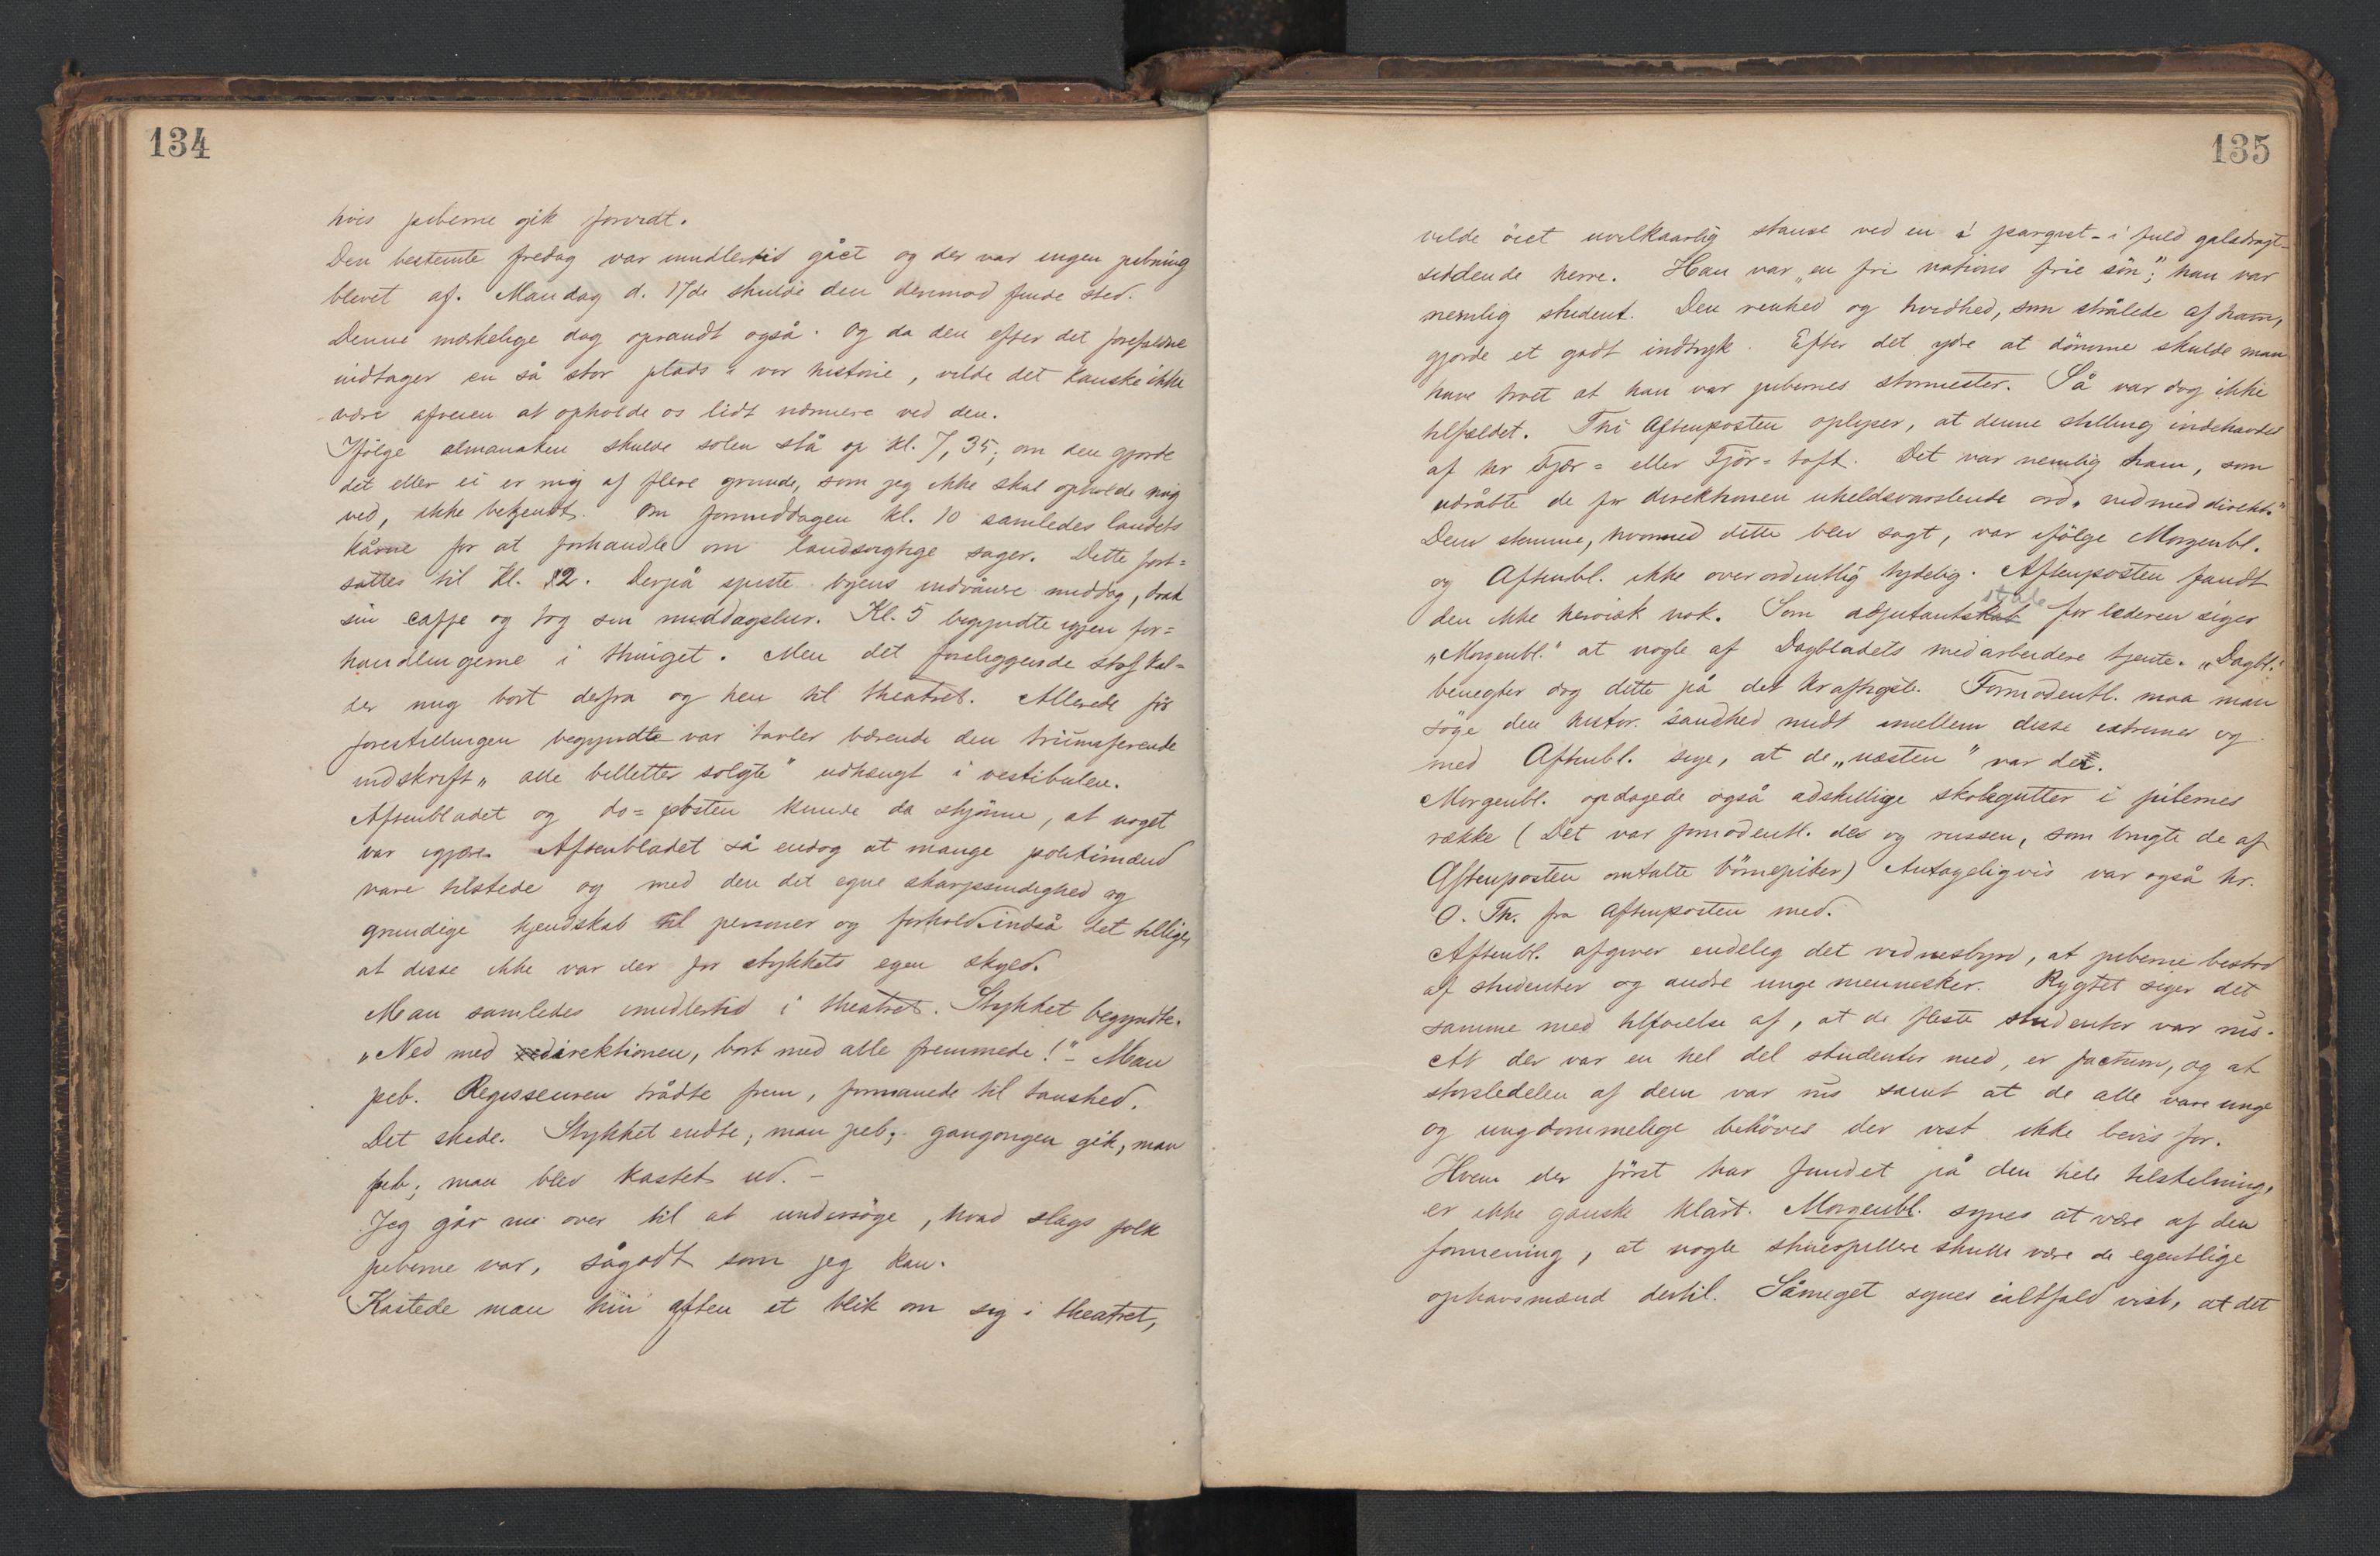 134
hvis piberne gik forvidt.
Den bestemte fredag var imidlertid gået og der var ingen pibning
blevet af. Mandag d. 17de skulde den derimod finde sted.
Denne mærkelige dag oprandt også. Og da den efter det forefaldne
indtager en så stor plads i vor historie, vilde det kanske ikke
være afveien at opholde os lidt nærmere ved den.
Ifølge almanaken skulde solen stå op kl. 7,35; om den gjorde
det eller ei er mig af flere grunde, som jeg ikke skal opholde mig
ved, ikke bekjendt. Om formiddagen kl. 10 samledes landets
kårne for at forhandle om landsvigtige sager. Dette fort=
sattes til kl. 12. Derpå spiste byens indvånere middag, drak
sin caffe og tog sin middagslur. Kl. 5 begyndte igjen for=
handlingerne i thinget. Men det foreliggende stof kal=
der mig bort derfra og hen til theatret. Allerede før
forestillingen begyndte var tavler bærende den triumferende
indskrift „alle billetter solgte" udhængt i vestibulen.
Aftenbladet og do= posten kunde da skjønne, at noget
var igjære. Aftenbladet så endog at mange politimænd
vare tilstede og med den det egne skarpsindighed og
grundige kjendskab til personer og forhold indså det tillige,
at disse ikke var der for stykkets egen skyld.
Man samledes imidlertid i theatret. Stykket begyndte.
„Ned med direktionen, bort med alle fremmede!" – Man
peb. Regisseuren trådte frem, formanede til taushed.
Det skede. Stykket endte; man peb; gangongen gik, man
peb; man blev kastet ud. –
Jeg går nu over til at undersøge, hvad slags folk
piberne var, sågodt som jeg kan.
Kastede man hin aften et blik om sig i theatret,
135
vilde öiet uvilkaarlig stanse ved en i parquet – i fuld galadragt –
siddende herre. Han var „en fri nations frie sön"; han var
nemlig student. Den renhed og hvidhed, som strålede af ham,
gjorde et godt indtryk. Efter det ydre at dömme skulde man
have troet at han var pibernes stormester. Så var dog ikke
tilfældet. Thi Aftenposten oplyser, at denne stilling indehavdes
af hr Fjær= eller Fjör=toft. Det var nemlig ham, som
udråbte de for direktionen uheldsvarslende ord „ned med direkt."
Den stemme, hvormed dette blev sagt, var ifölge Morgenbl.
og Aftenbl. ikke overordentlig tydelig. Aftenposten fandt
den ikke heroisk nok. Som adjutantskab stab for lederen siger
„Morgenbl." at nogle af Dagbladets medarbeidere tjente. „Dagbl."
benegter dog dette på det kraftigste. Formodentl. maa man
söge den histor. sandhed midt imellem disse extremer og
med Aftenbl. sige, at de „næsten" var der.
Morgenbl. opdagede også adskillige skolegutter i pibernes
række (Det var formodentl. des og russen, som brugte de af
Aftenposten omtalte börnepiber) Antageligvis var også hr.
O. Th. fra Aftenposten med.
Aftenbl. afgiver endelig det vidnesbyrd, at piberne bestod
af studenter og andre unge mennesker. Rygtet siger det
samme med tilföielse af, at de fleste studenter var rus.
At der var en hel del studenter med, er factum, og at
storstedelen af dem var rus samt at de alle vare unge
og ungdommelige behöves der vist ikke bevis for.
Hvem der först har fundet på den hele tilstelning,
er ikke ganske klart. Morgenbl. synes at være af den
formening, at nogle skuespillere skulle være de egentlige
ophavsmænd dertil. Såmeget synes ialtfald vist, at det